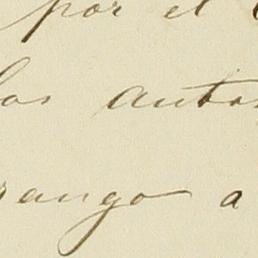 por el
los autos
rango a